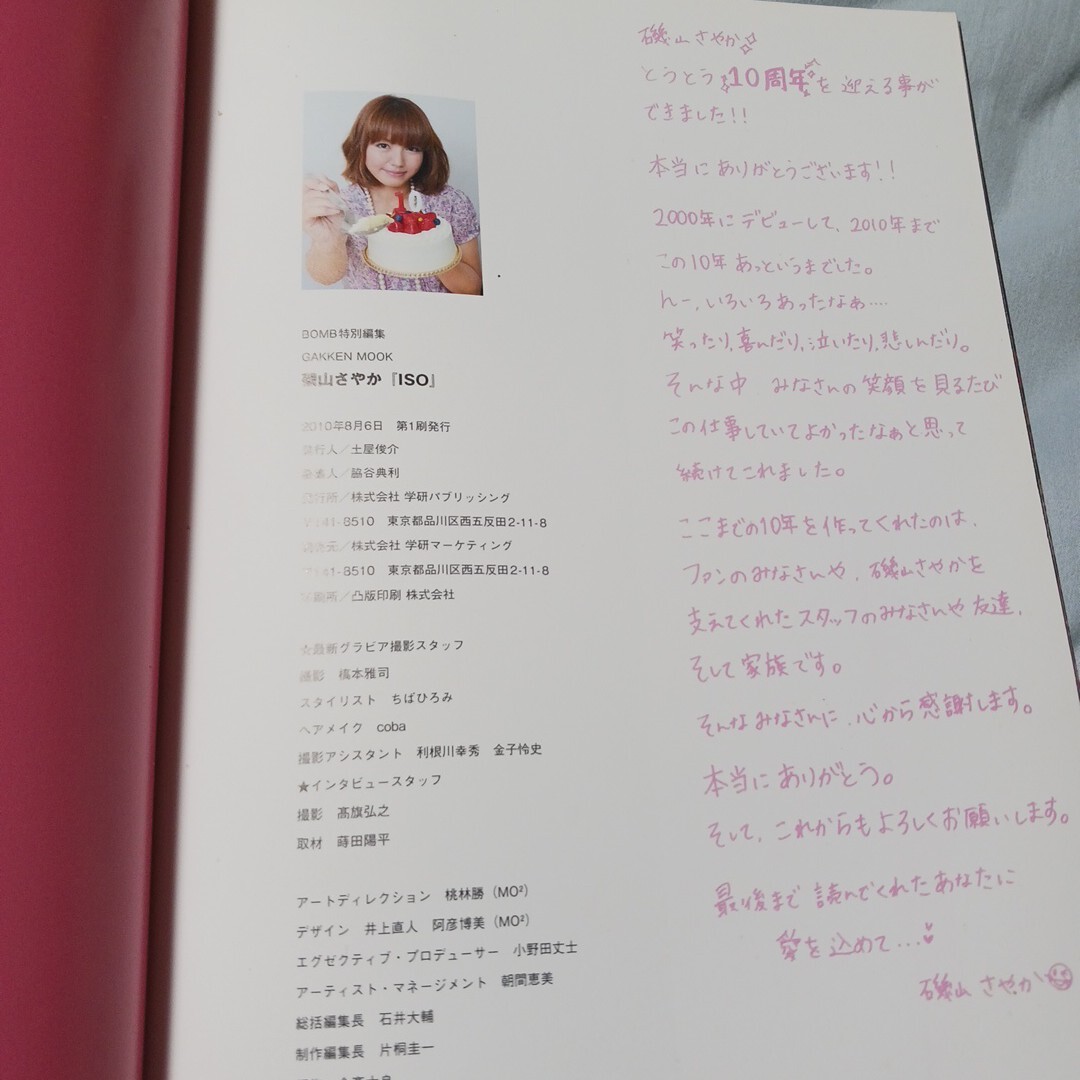 BOMB特別編集
GAKKEN MOOK
磯山さやか『ISO』
2010年8月6日 第1刷発行
発行人／土屋俊介
／脇谷典利
発行所／株式会社 学研パブリッシング
〒141-8510 東京都品川区西五反田2-11-8
発売元／株式会社 学研マーケティング
〒141-8510 東京都品川区西五反田2-11-8
印刷所／凸版印刷 株式会社
☆最新グラビア撮影スタッフ
撮影 橋本雅司
スタイリスト ちばひろみ
ヘアメイク coba
撮影アシスタント 利根川幸秀 金子怜史
★インタビュースタッフ
撮影 髙旗弘之
取材 蒔田陽平
アートディレクション 桃林勝（MO²）
デザイン 井上直人 阿彦博美（MO²）
エグゼクティブ・プロデューサー 小野田丈士
アーティスト・マネージメント 朝間恵美
総括編集長 石井大輔
制作編集長 片桐圭一
磯山さやか
とうとう10周年を迎える事が
できました!!
本当にありがとうございます!!
2000年にデビューして、2010年まで
この10年あっというまでした。
んー、いろいろあったなぁ‥‥
笑ったり、喜んだり、泣いたり、悲しんだり。
そんな中 みなさんの笑顔を見るたび
この仕事していてよかったなぁと思って
続けてこれました。
ここまでの10年を作ってくれたのは、
ファンのみなさんや、磯山さやかを
支えてくれたスタッフのみなさんや友達、
そして家族です。
そんなみなさんに、心から感謝します。
本当にありがとう。
そして、これからもよろしくお願いします。
最後まで読んでくれたあなたに
愛を込めて…♥
磯山さやか